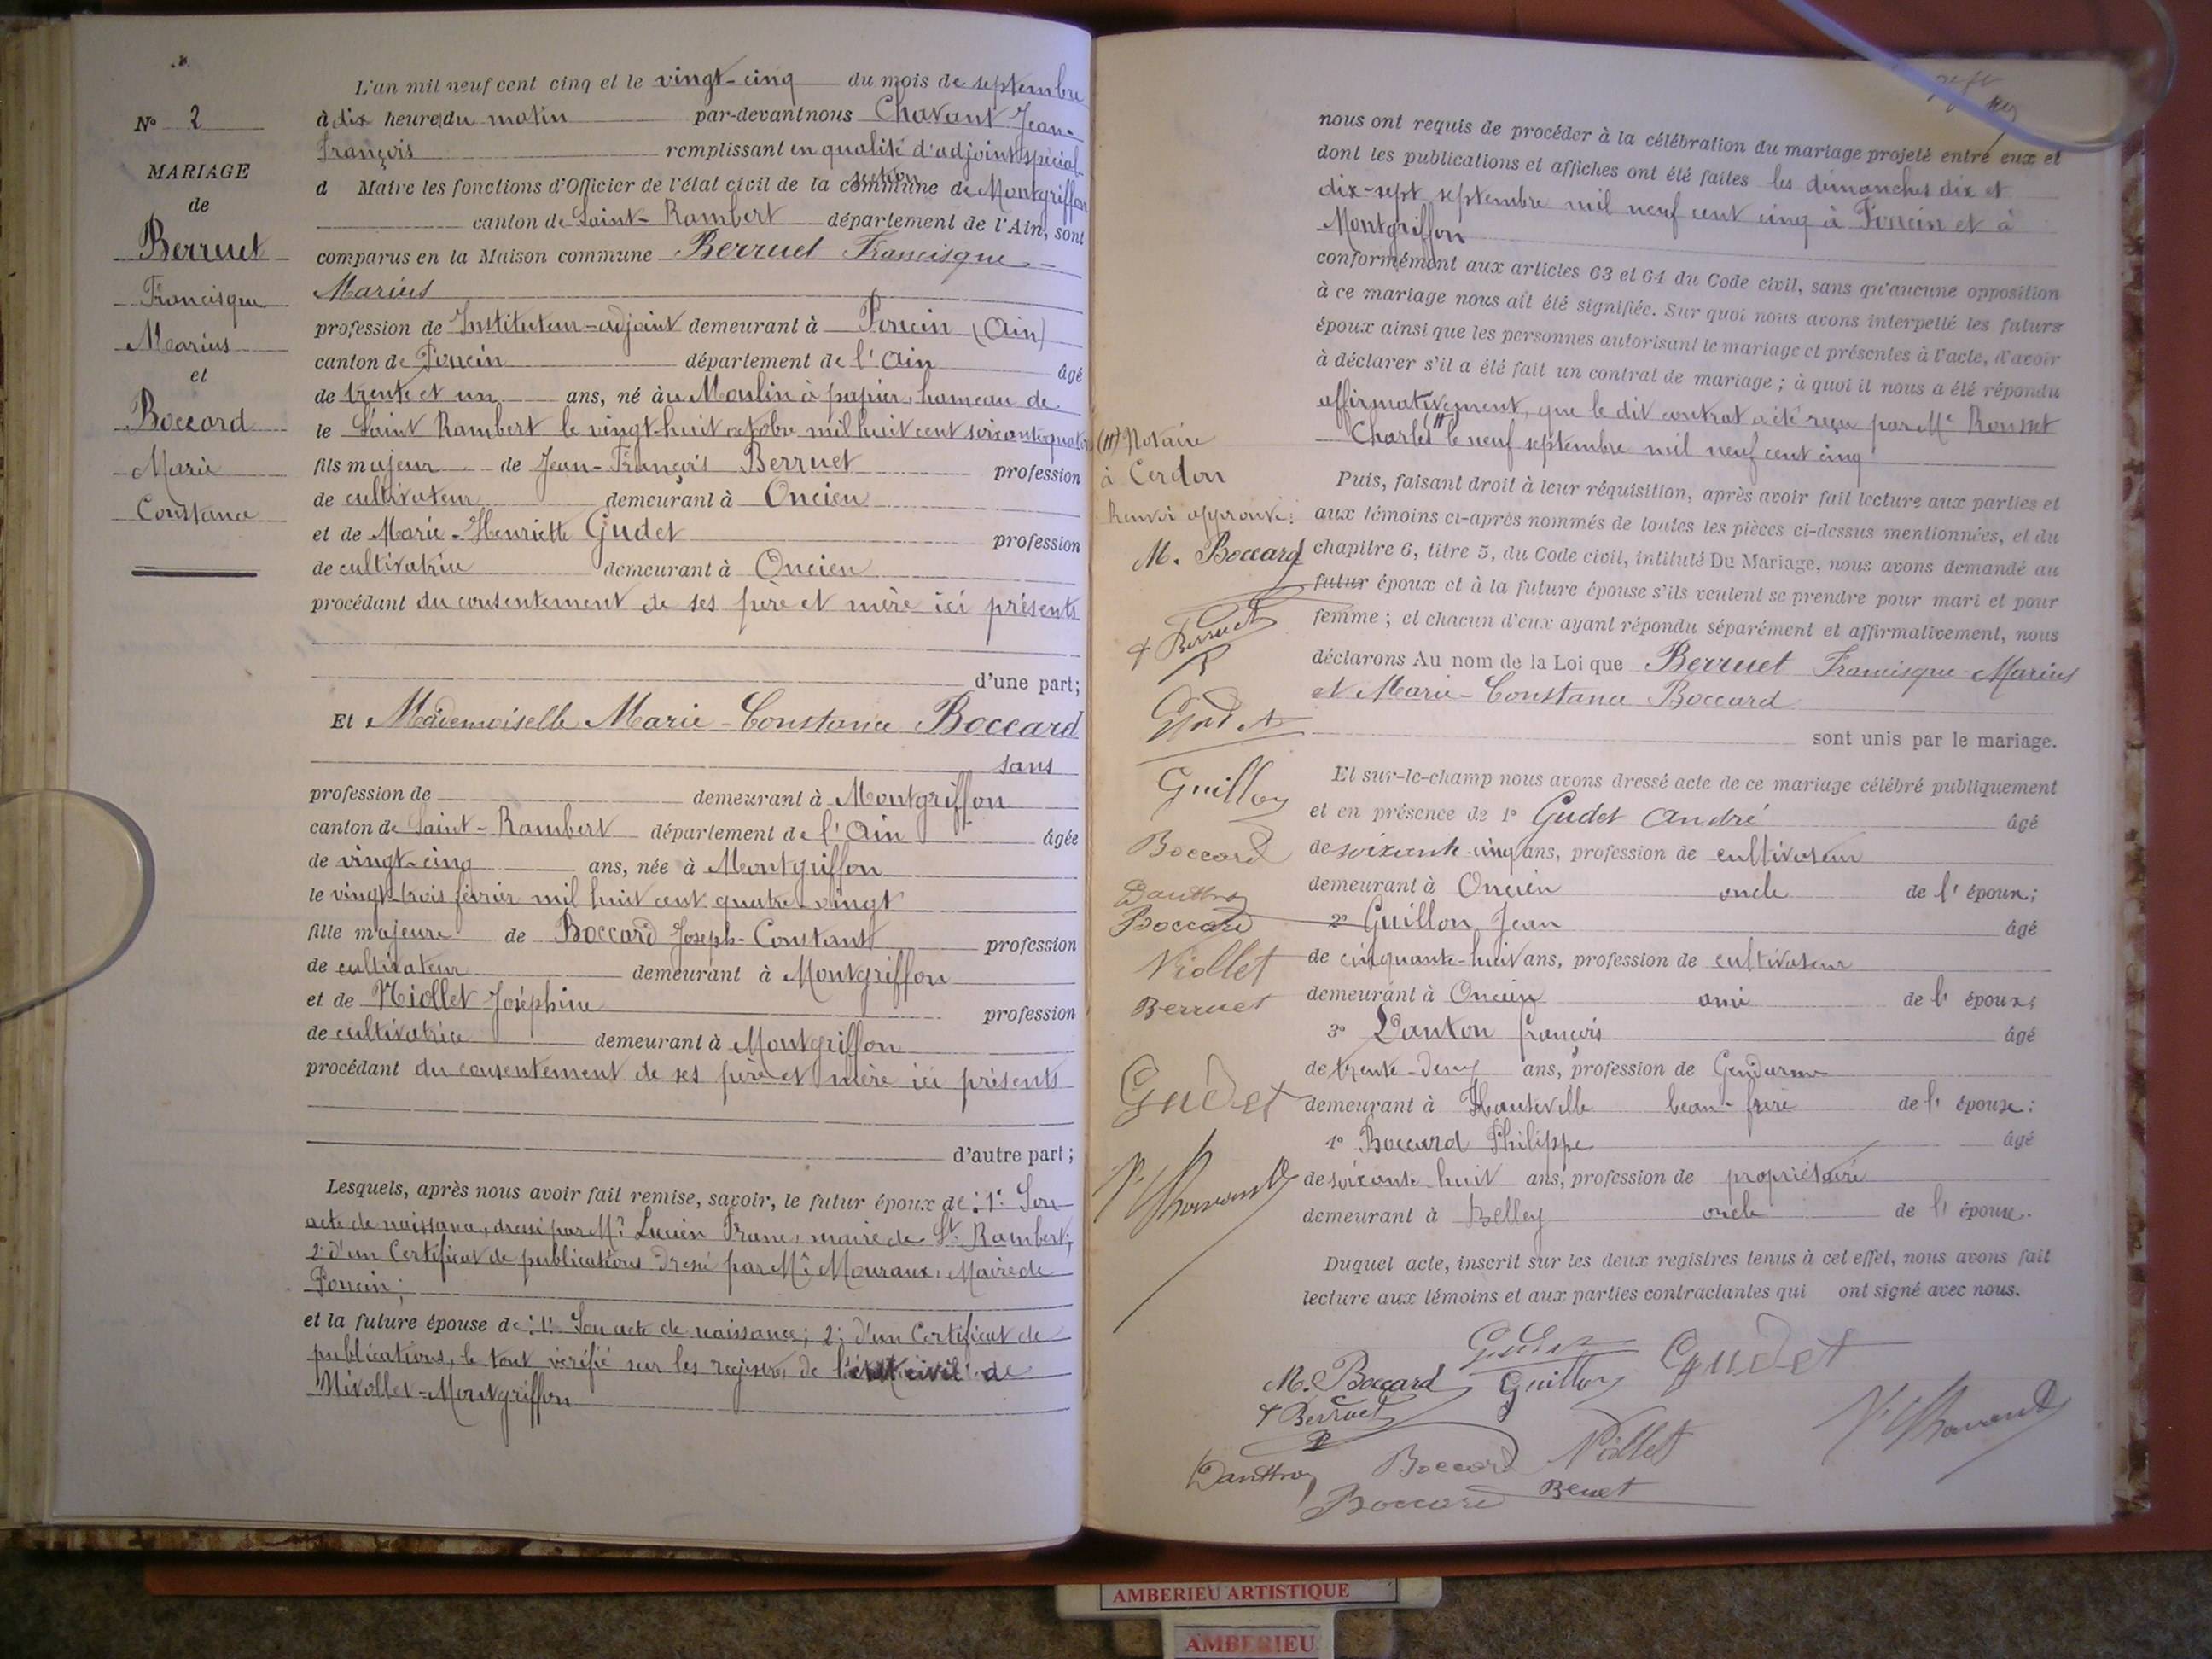 N° 2
MARIAGE
de
Berruet
Francisque
Marius
et
Boccard
Marie
Constance
L'an mil neuf cent cinq et le vingt-cinq du mois de septembre
à dix heures du matin par-devant nous Chavant Jean-
François remplissant en qualité d'adjoint spécial
d Maire les fonctions d'Officier de l'état civil de la commune de Montgriffon
section
canton de Saint-Rambert département de l'Ain, sont
comparus en la Maison commune Berruet Francisque
Marius
profession de Instituteur-adjoint demeurant à Poncin (Ain)
canton de Poncin département de l'Ain âgé
de trente et un ans, né au Moulin à papier, hameau de
le Saint Rambert le vingt-huit octobre mil huit cent soixante quatorze
fils majeur de Jean-François Berruet profession
de cultivateur demeurant à Oncieu
et de Marie-Henriette Gudet profession
de cultivatrice demeurant à Oncieu
procédant du consentement de ses père et mère ici présents
d'une part;
Et Mademoiselle Marie-Constance Boccard
sans
profession de demeurant à Montgriffon
canton de Saint-Rambert département de l'Ain âgée
de vingt-cinq ans, née à Montgriffon
le vingt-trois février mil huit cent quatre-vingt
fille majeure de Boccard Joseph-Constant profession
de cultivateur demeurant à Montgriffon
et de Niollet Joséphine profession
de cultivatrice demeurant à Montgriffon
procédant du consentement de ses père et mère ici présents
d'autre part;
Lesquels, après nous avoir fait remise, savoir, le futur époux de: 1° Son
acte de naissance, dressé par Mr Lucien Franc, maire de St Rambert;
2° d'un Certificat de publications dressé par Mr Mouraux, Maire de
Poncin;
et la future épouse de: 1° Son acte de naissance; 2° d'un Certificat de
publications, le tout vérifié sur les registres de l'état civil de
Nivollet-Montgriffon
nous ont requis de procéder à la célébration du mariage projeté entre eux et
dont les publications et affiches ont été faites les dimanches dix et
dix-sept septembre mil neuf cent cinq à Poncin et à
Montgriffon
conformément aux articles 63 et 64 du Code civil, sans qu'aucune opposition
à ce mariage nous ait été signifiée. Sur quoi nous avons interpellé les futurs
époux ainsi que les personnes autorisant le mariage et présentes à l'acte, d'avoir
à déclarer s'il a été fait un contrat de mariage; à quoi il nous a été répondu
affirmativement, que le dit contrat a été reçu par Me Rousset
Charles (#) le neuf septembre mil neuf cent cinq
(#) Notaire
à Cerdon
Renvoi approuvé:
M. Boccard
F Berruet
Gudet
Guillon
Boccard
Danthon
Boccard
Niollet
Berruet
Gudet
Chavant
Puis, faisant droit à leur réquisition, après avoir fait lecture aux parties et
aux témoins ci-après nommés de toutes les pièces ci-dessus mentionnées, et du
chapitre 6, titre 5, du Code civil, intitulé Du Mariage, nous avons demandé au
futur époux et à la future épouse s'ils veulent se prendre pour mari et pour
femme; et chacun d'eux ayant répondu séparément et affirmativement, nous
déclarons Au nom de la Loi que Berruet Francisque-Marius
et Marie-Constance Boccard
sont unis par le mariage.
Et sur-le-champ nous avons dressé acte de ce mariage célébré publiquement
et en présence de 1° Gudet André âgé
de soixante-cinq ans, profession de cultivateur
demeurant à Oncieu oncle de l'époux;
2° Guillon Jean âgé
de cinquante-huit ans, profession de cultivateur
demeurant à Oncieu ami de l'époux;
3° Danton François âgé
de trente-deux ans, profession de Gendarme
demeurant à Hauteville beau-frère de l'épouse;
4° Boccard Philippe âgé
de soixante-huit ans, profession de propriétaire
demeurant à Belley oncle de l'épouse.
Duquel acte, inscrit sur les deux registres tenus à cet effet, nous avons fait
lecture aux témoins et aux parties contractantes qui ont signé avec nous.
Gudet Gudet
M. Boccard Guillon
F Berruet Chavant
Danthon Boccard Niollet
Boccard Berruet
AMBERIEU ARTISTIQUE
AMBERIEU